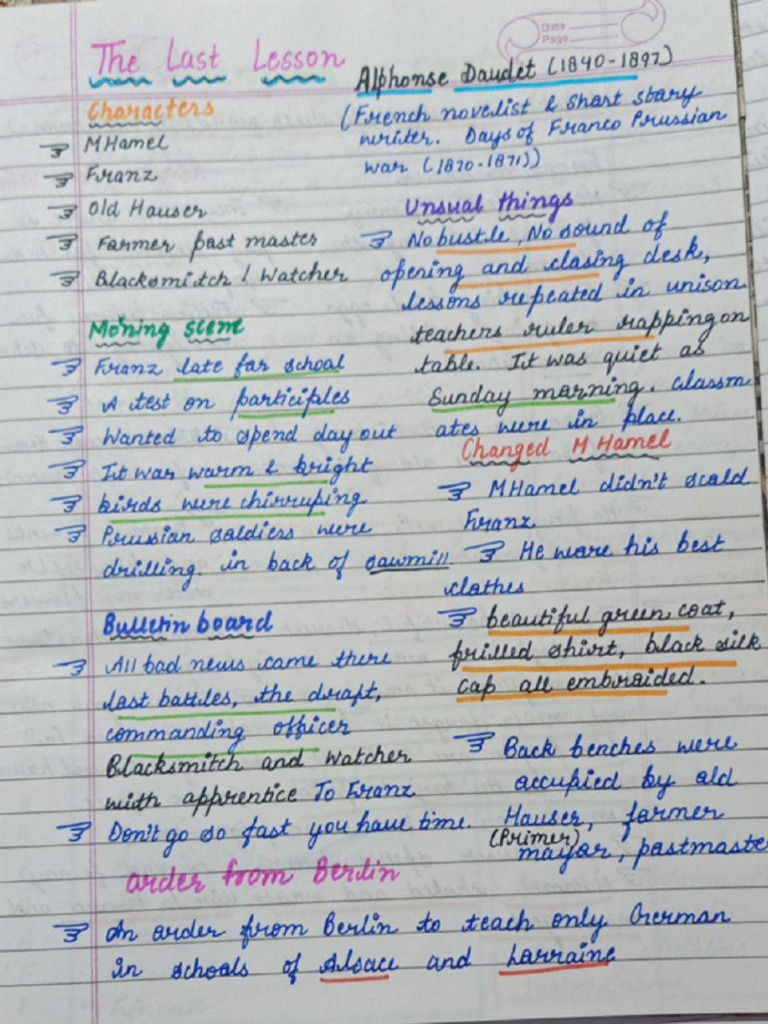 Date
Page
The Last Lesson
Alphonse Daudet (1840-1897)
(French novelist & short story
writer. Days of Franco Prussian
war (1870-1871))
Characters
M Hamel
Franz
Old Hauser
Farmer past master
Blacksmitch / Watcher
Morning scene
Franz late for school
A test on participles
Wanted to spend day out
It was warm & bright
birds were chirruping
Prussian soldiers were
drilling in back of sawmill
Bulletin board
All bad news came there
last battles, the draft,
commanding officer
Blacksmitch and watcher
with apprentice To Franz
Don't go so fast you have time.
Unsual things
No bustle, No sound of
opening and closing desk,
lessons repeated in unison
teachers ruler rapping on
table. It was quiet as
Sunday morning. classm
ates were in place.
Changed M Hamel
M Hamel didn't scald
Franz
He wore his best
clothes
beautiful green coat,
frilled shirt, black silk
cap all embraided.
Back benches were
accupied by old
Hauser, farmer
(Primer)
mayor, postmaste
order from Berlin
An order from Berlin to teach only German
in schools of Alsace and Larraine